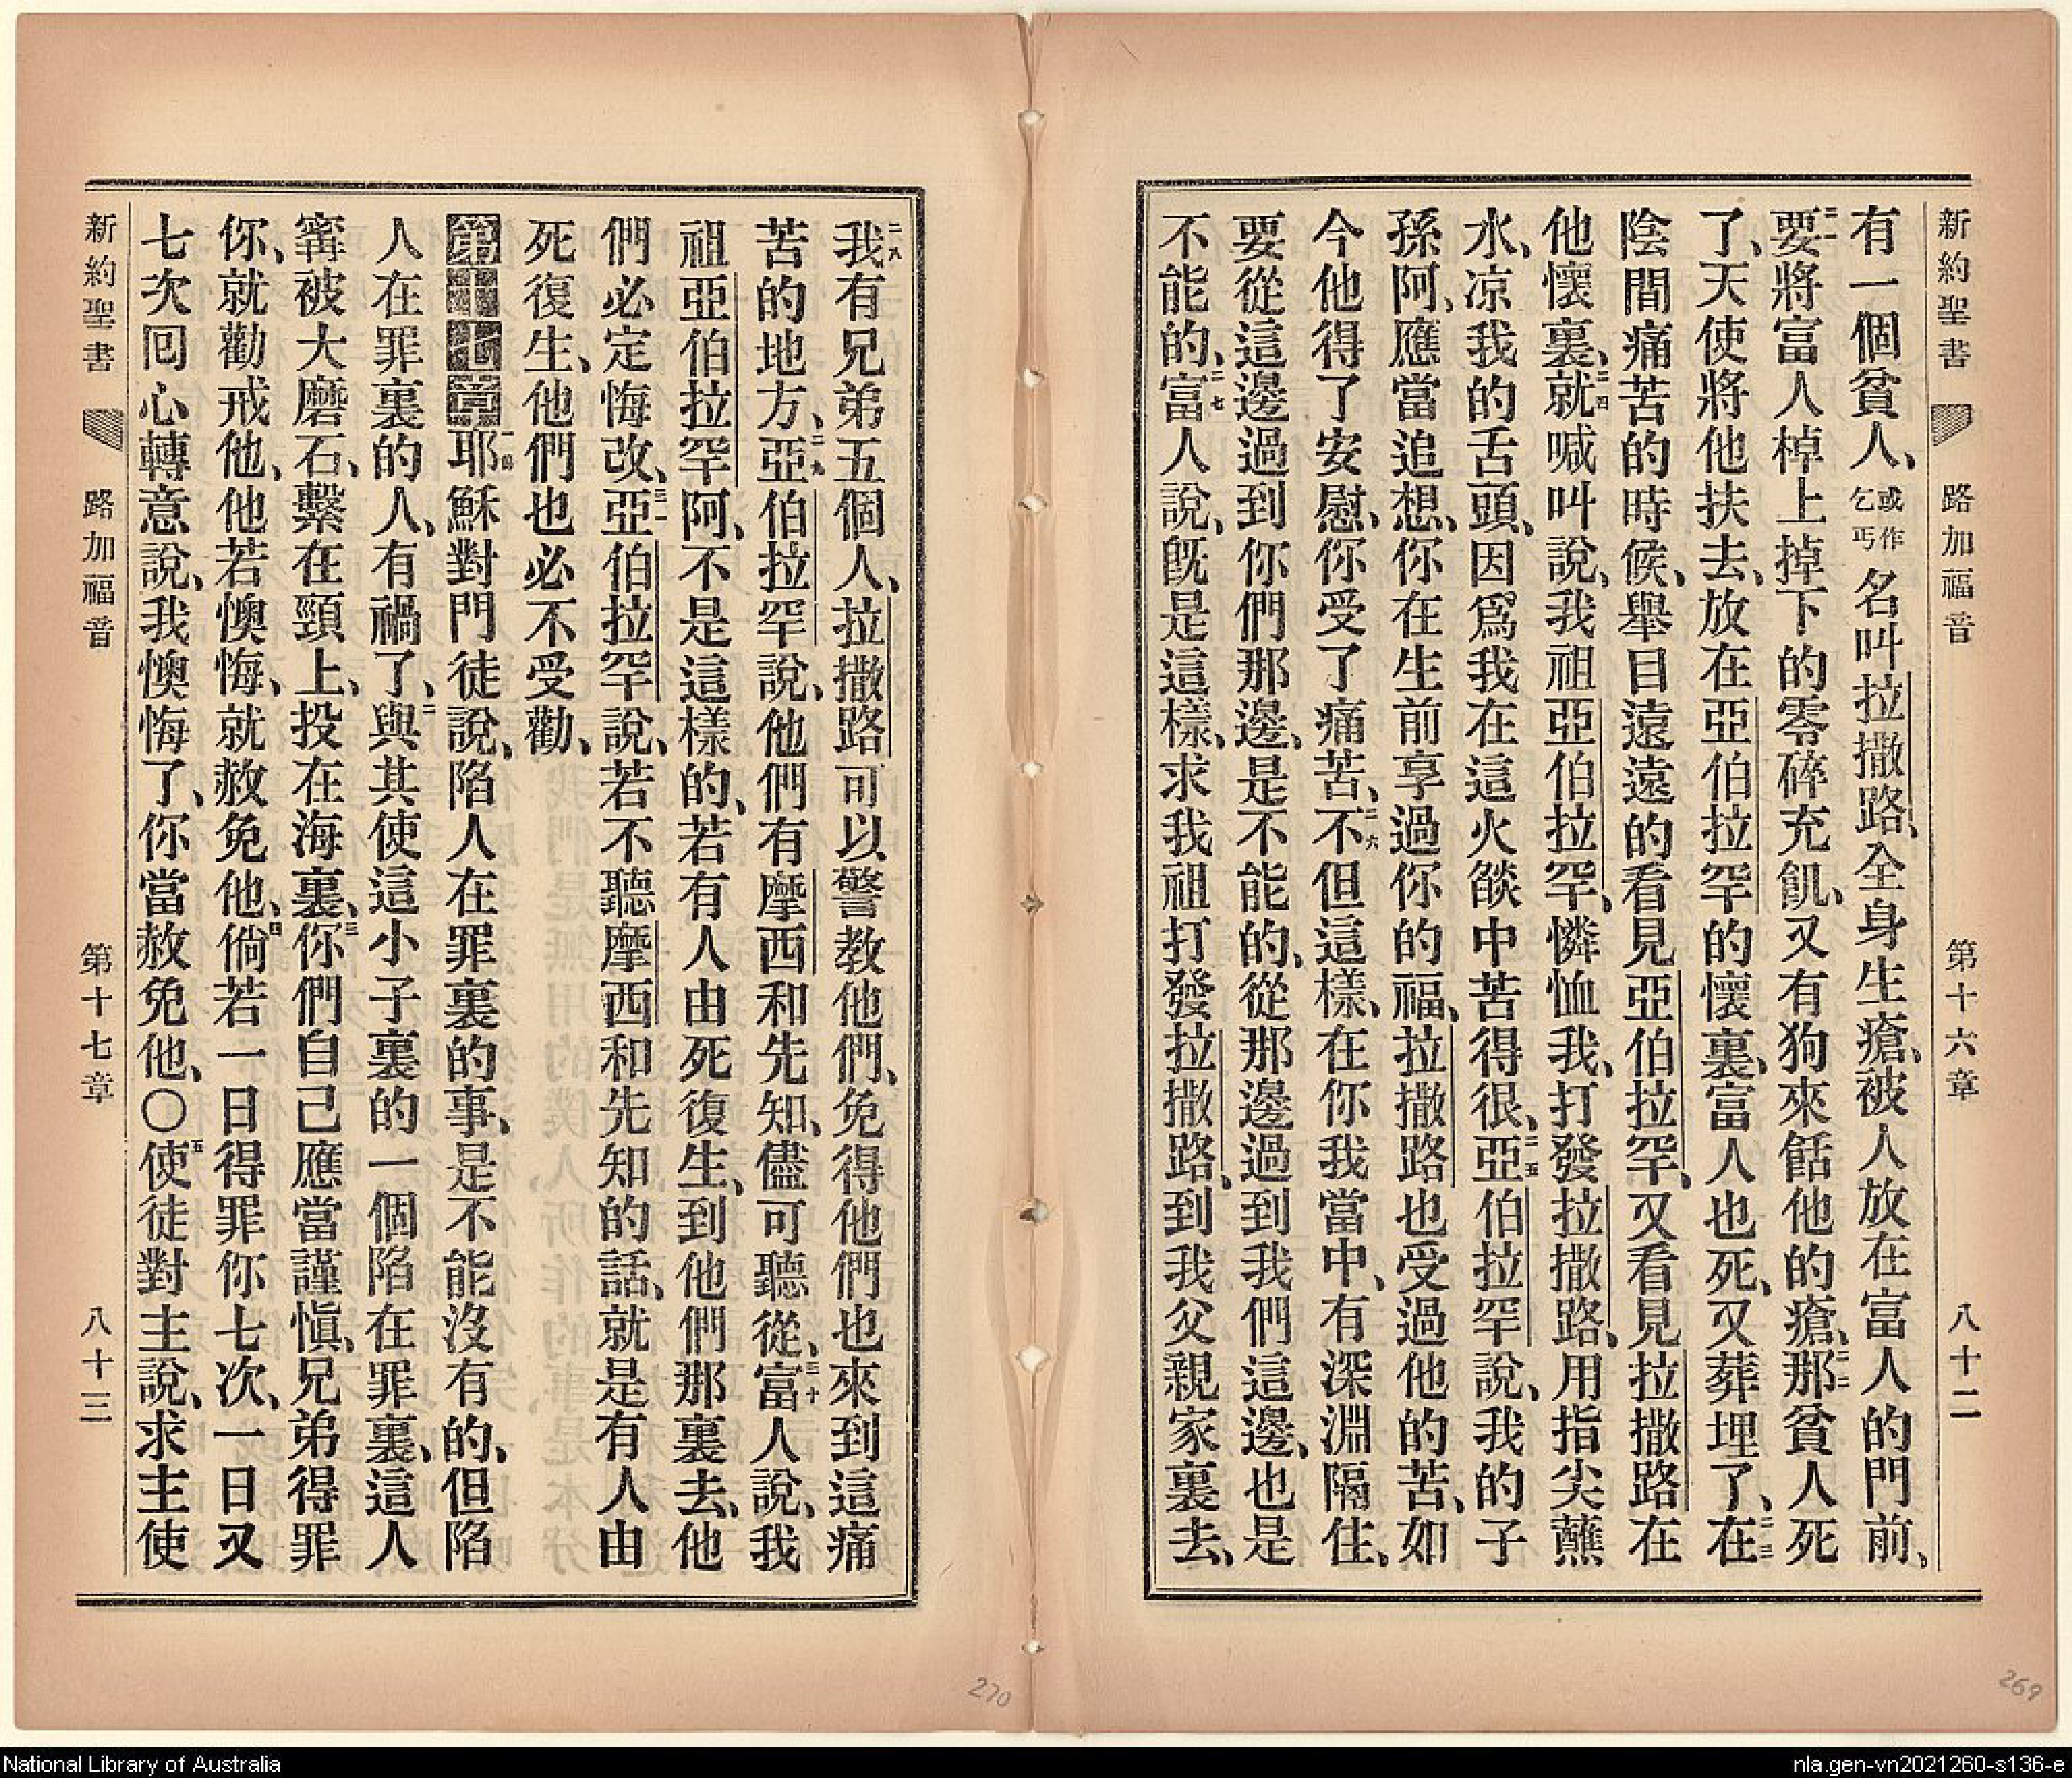 新約聖書 路加福音 第十六章 八十二
有一個貧人、或作乞丐名叫拉撒路、全身生瘡、被人放在富人的門前、
二一要將富人棹上掉下的零碎充飢、又有狗來餂他的瘡、二二那貧人死
了、天使將他扶去、放在亞伯拉罕的懷裏、富人也死、又葬埋了、二三在
陰間痛苦的時候、舉目遠遠的看見亞伯拉罕、又看見拉撒路在
他懷裏、二四就喊叫說、我祖亞伯拉罕、憐恤我、打發拉撒路、用指尖蘸
水、凉我的舌頭、因爲我在這火燄中苦得很、二五亞伯拉罕說、我的子
孫阿、應當追想、你在生前享過你的福、拉撒路也受過他的苦、如
今他得了安慰、你受了痛苦、二六不但這樣、在你我當中、有深淵隔住、
要從這邊過到你們那邊、是不能的、從那邊過到我們這邊、也是
不能的、二七富人說、旣是這樣、求我祖打發拉撒路、到我父親家裏去、
二八我有兄弟五個人、拉撒路可以警教他們、免得他們也來到這痛
苦的地方、二九亞伯拉罕說、他們有摩西和先知、儘可聽從、三十富人說、我
祖亞伯拉罕阿、不是這樣的、若有人由死復生、到他們那裏去、他
們必定悔改、三一亞伯拉罕說、若不聽摩西和先知的話、就是有人由
死復生、他們也必不受勸、
第十七章一節耶穌對門徒說、陷人在罪裏的事、是不能沒有的、但陷
人在罪裏的人、有禍了、二與其使這小子裏的一個陷在罪裏、這人
寗被大磨石、繫在頸上、投在海裏、三你們自己應當謹愼、兄弟得罪
你、就勸戒他、他若懊悔、就赦免他、四倘若一日得罪你七次、一日又
七次回心轉意說、我懊悔了、你當赦免他、〇五使徒對主說、求主使
新約聖書 路加福音 第十七章 八十三
270
269
National Library of Australia
nla.gen-vn2021260-s136-e